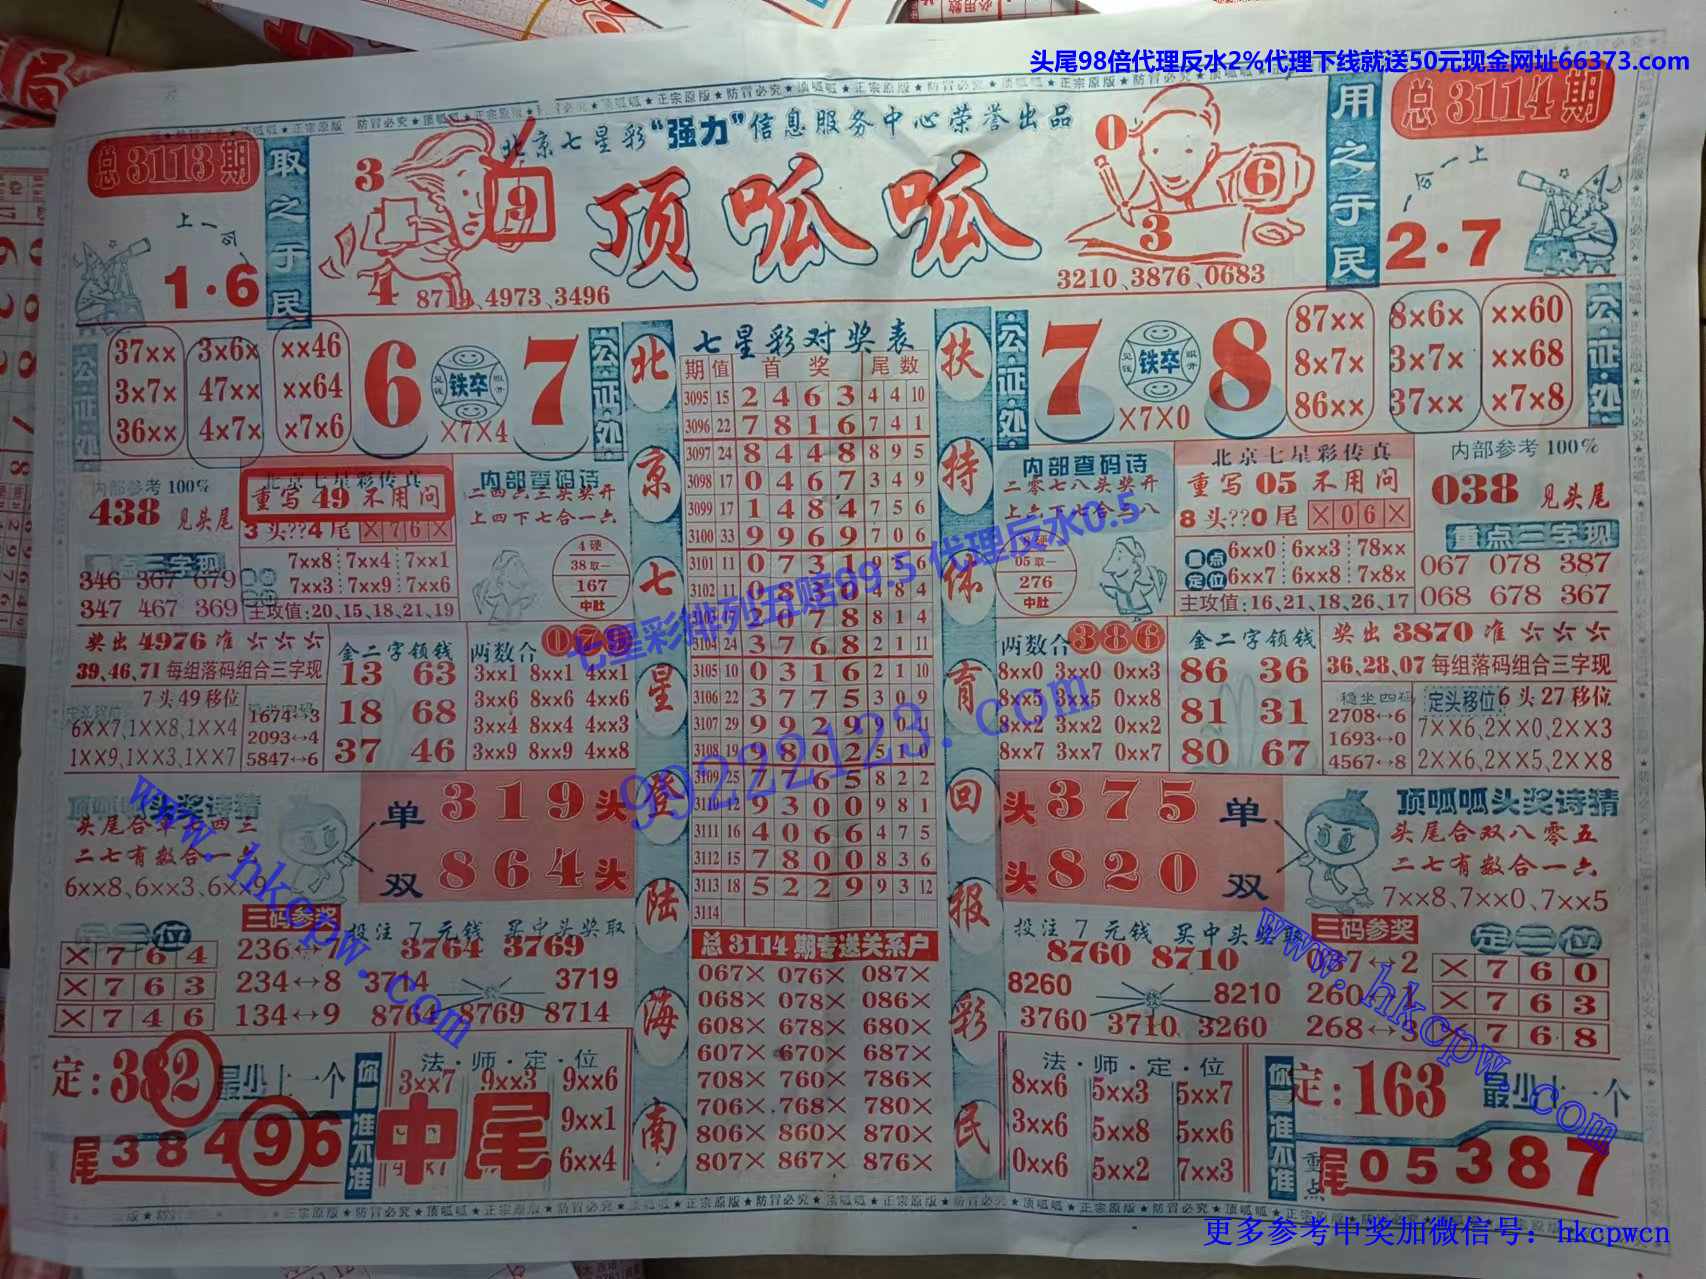 头尾98倍代理反水2%代理下线就送50元现金网址66373.com
总3113期
取之于民
北京七星彩“强力”信息服务中心荣誉出品
用之于民
总3114期
上一
1·6
3
9
4
8719、4973、3496
顶呱呱
0
6
3
3210、3876、0683
上一
2·7
公证处
37×× 3×6× ××46
3×7× 47×× ××64
36×× 4×7× ×7×6
6 铁卒 7
×7×4
公证处
七星彩对奖表
公证处
7 铁卒 8
×7×0
87×× 8×6× ××60
8×7× 3×7× ××68
86×× 37×× ×7×8
公证处
内部参考100%
438 见头尾
北京七星彩传真
重写49不用问
3头??4尾 ×76×
内部查码诗
二四六三头奖开
上四下七合一六
重点三字现
346 367 679
347 467 369
7××8 7××4 7××1
7××3 7××9 7××6
主攻值:20、15、18、21、19
4硬
38取一
167
中肚
奖出4976准
39、46、71每组落码组合三字现
7头49移位
6××7、1××8、1××4
1××9、1××3、1××7
1674↔3
2093↔4
5847↔6
金二字领钱
13 63
18 68
37 46
两数合
3××1 8××1 4××1
3××6 8××6 4××6
3××4 8××4 4××3
3××9 8××9 4××8
北京七星登陆海南
期 值 首奖 尾数
3095 15 2463 4 4 10
3096 22 7816 7 4 1
3097 24 8448 8 9 5
3098 17 0467 3 4 9
3099 17 1484 7 5 6
3100 33 9969 7 0 6
3101 11 0731
3102 11 0830 4 8 4
2078 8 1 4
3104 24 3768 2 1 11
3105 10 0316 2 1 10
3106 22 3775 3 0 9
3107 29 9929
3108 19 9802 5 1 0
3109 25 7765 8 2 2
3110 12 9300 9 8 1
3111 16 4066 4 7 5
3112 15 7800 8 3 6
3113 18 5229 9 3 12
3114
扶持体育回报彩民
内部查码诗
二零七八头奖开
北京七星彩传真
重写05不用问
8头??0尾 ×06×
内部参考100%
038 见头尾
05取一
276
中肚
重点定位
6××0 6××3 78××
6××7 6××8 7×8×
主攻值:16、21、18、26、17
重点三字现
067 078 387
068 678 367
两数合386
8××0 3××0 0××3
8××5 3××5 0××8
8××2 3××2 0××2
8××7 3××7 0××7
金二字领钱
86 36
81 31
80 67
奖出3870准
36、28、07每组落码组合三字现
稳坐四码
2708↔6
1693↔0
4567↔8
定头移位 6头27移位
7××6、2××0、2××3
2××X6、2××5、2××8
二七有数合一
6××8、6××3、6××9
单 319头
双 864头
头375 单
头820 双
顶呱呱头奖诗猜
头尾合双八零五
二七有数合一六
7××8、7××0、7××5
×764
×763
×746
三码参奖
236↔7
234↔8
134↔9
投注7元钱 买中头奖取
3764 3769
3714 3719
8764 8769 8714
总3114期专送关系户
067× 076× 087×
068× 078× 086×
608× 678× 680×
607× 670× 687×
708× 760× 786×
706× 768× 780×
806× 860× 870×
807× 867× 876×
投注7元钱 买中头奖取
8760 8710
8260 8210
3760 3710 3260
三码参奖
087↔2
260↔1
268↔3
定三位
×760
×763
768
定:382 最少上一个
尾38496
你看准不准
法·师·定·位
3××7 9××3 9××6
9××1
6××4
中尾
法·师·定·位
8××6 5××3 5××7
3××6 5××8 5××6
0××6 5××2 7××3
你看准不准
定:163 最少上一个
重点尾05387
七星彩排列五赔99.5 代理反水0.5
99222123.com
www.hkcpw.com
www.hkcpw.com
更多参考中奖加微信号：hkcpwcn